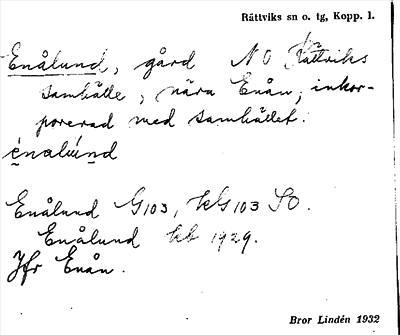 Rättviks sn o. tg, Kopp. l.
Enålund, gård NO Rättviks
samhälle, nära Enån; inkor-
porerad med samhället.
Enålund G103, kG103 SO.
Enålund kb 1929.
Jfr Enån.
Bror Lindén 1932